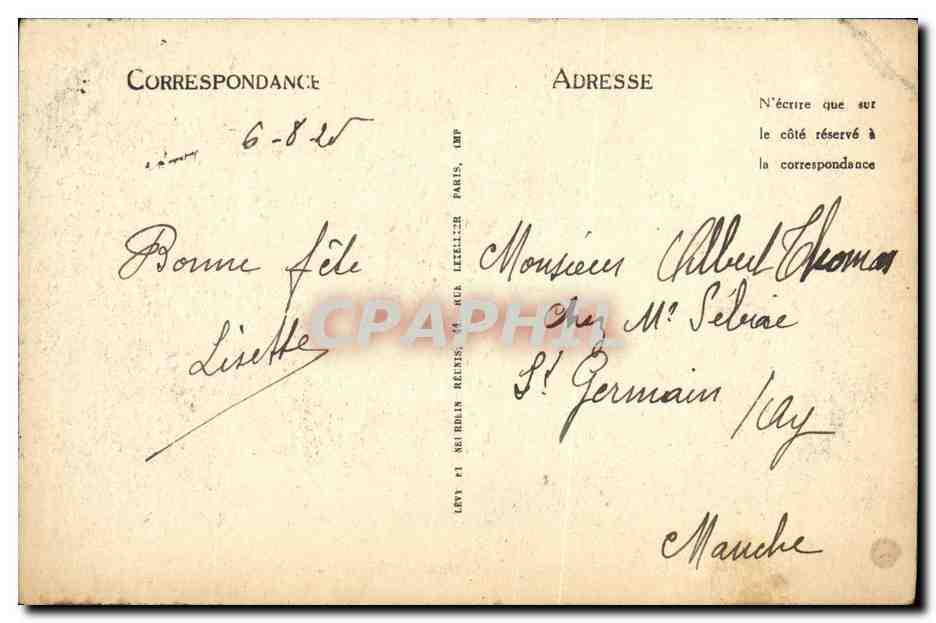 CORRESPONDANCE
6-8-25
Bonne fête
Lisette
LÉVY ET NEURDEIN RÉUNIS, 44 RUE LETELLIER PARIS, IMP
ADRESSE
N'écrire que sur
le côté réservé à
la correspondance
Monsieur Albert Thomas
chez Mr
St Germain /ay
Manche
CPAPHIL